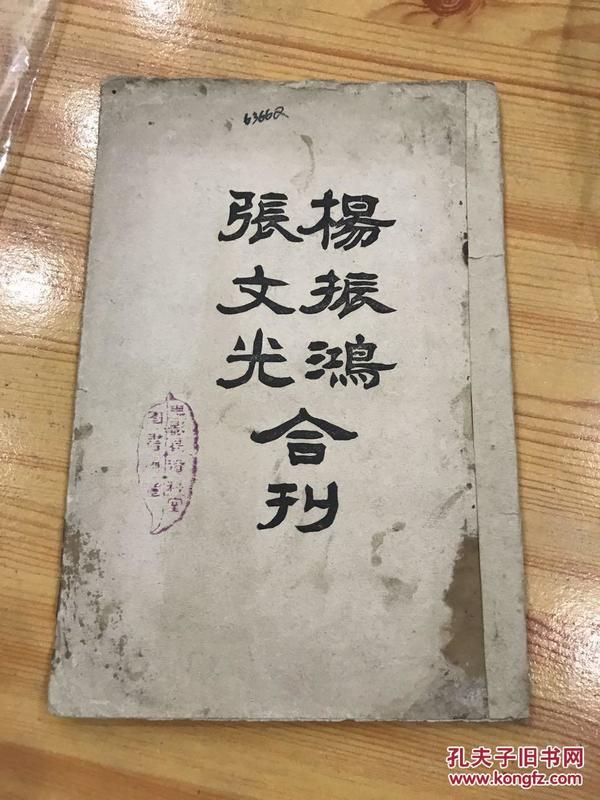 63662
楊振鴻
張文光
合刊
孔夫子旧书网
www.kongfz.com